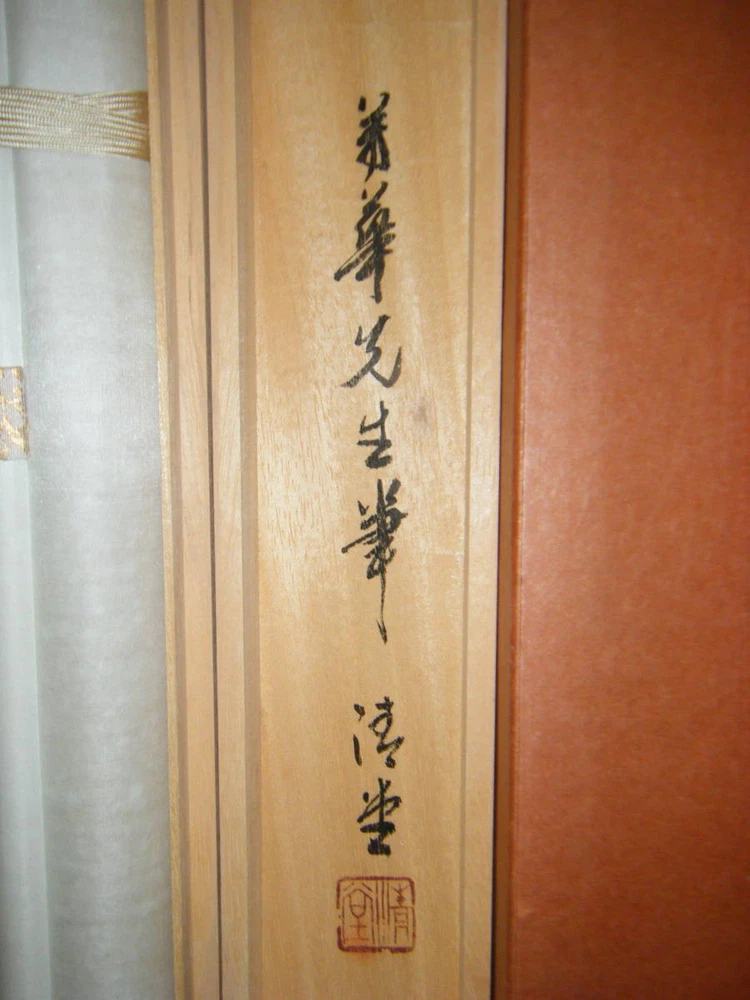 華先生筆 清堂
清堂